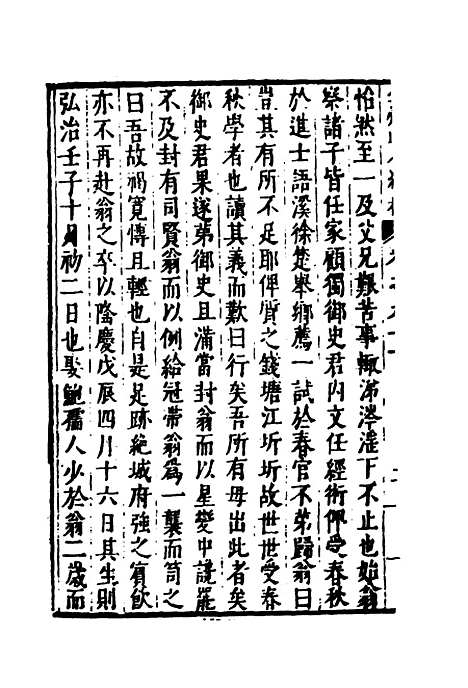 怡然至一及父兄艱苦事輙涕涔滛下不止也始翁
察諸子皆任家顧獨御史君内文任經術俾受春秋
於進士語溪徐楚舉鄉薦一試於春官不第歸翁曰
豈其有所不足耶俾質之錢塘江圻圻故世世受春
秋學者也讀其義而歎曰行矣吾所有毋出此者矣
御史君果遂第御史且滿當封翁而以星變中讒罷
不及封有司賢翁而以例給冠帶翁爲一襲而笥之
曰吾故褐寛愽且輕也自是足跡絶城府強之賓飲
亦不再赴翁之卒以隆慶戊辰四月十六日其生則
弘治壬子十月初二日也娶鮑孺人少於翁二歲而